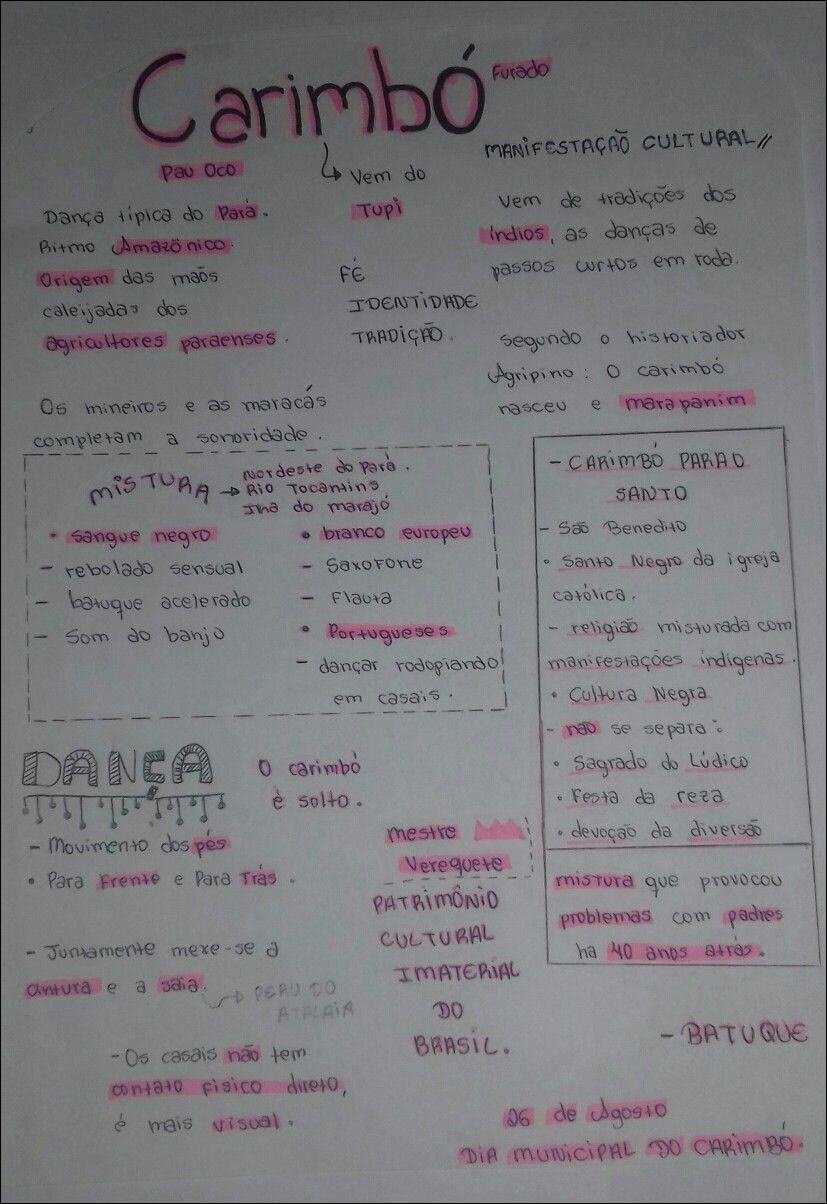 Carimbó
Furado
Pau Oco
Vem do
Tupi
MANIFESTAÇÃO CULTURAL//
Dança típica do Pará.
Ritmo Amazônico.
Origem das mãos
caleijadas dos
agricultores paraenses.
FÉ
IDENTIDADE
TRADIÇÃO.
Vem de tradições dos
índios, as danças de
passos curtos em roda.
Segundo o historiador
Agripino: O carimbó
nasceu e marapanim
Os mineiros e as maracás
completam a sonoridade.
MISTURA → Nordeste do Pará.
Rio Tocantins
Ilha do marajó
• sangue negro
- rebolado sensual
- batuque acelerado
- Som do banjo
• branco europeu
- Saxofone
- Flauta
• Portugueses
- dançar rodopiando
em casais.
- CARIMBÓ PARA O
SANTO
- São Benedito
• Santo Negro da igreja
católica.
- religião misturada com
manifestações indigenas.
• Cultura Negra
- não se separa:
• Sagrado do Lúdico
• Festa da reza
• devoção da diversão
mistura que provocou
problemas com padres
ha 40 anos atrás.
DANÇA
O carimbó
é solto.
- Movimento dos pés
• Para Frente e Para Trás.
- Juntamente mexe-se a
cintura e a saia.
PERU DO
ATALAIA
- Os casais não tem
contato físico direto,
é mais visual.
mestre
Verequete
PATRIMÔNIO
CULTURAL
IMATERIAL
DO
BRASIL.
- BATUQUE
26 de Agosto
DIA MUNICIPAL DO CARIMBÓ.